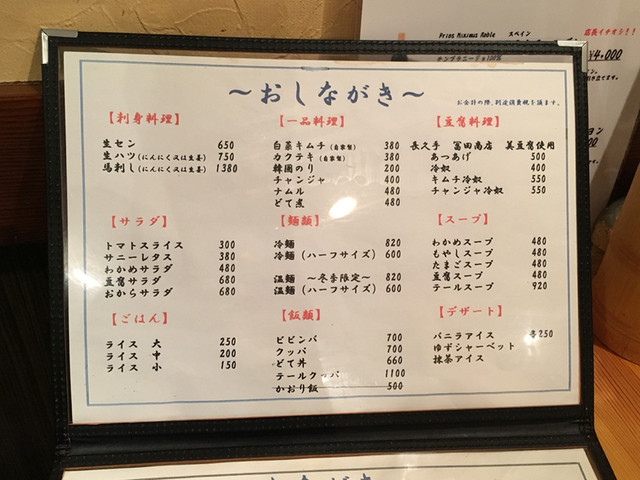 Prios Maximus Roble スペイン
店長イチオシ！！
¥4,000
～おしながき～
お会計の際、別途消費税を頂きます。
【刺身料理】
生セン 650
生ハツ(にんにく又は生姜) 750
馬刺し(にんにく又は生姜) 1380
【一品料理】
白菜キムチ(自家製) 380
カクテキ(自家製) 380
韓国のり 200
チャンジャ 480
ナムル 480
どて煮 480
【豆腐料理】
長久手 冨田商店 美豆腐使用
あつあげ 500
冷奴 400
キムチ冷奴 550
チャンジャ冷奴 550
【サラダ】
トマトスライス 300
サニーレタス 380
わかめサラダ 480
豆腐サラダ 680
おからサラダ 680
【麺類】
冷麺 820
冷麺(ハーフサイズ) 600
温麺 ～冬季限定～ 820
温麺(ハーフサイズ) 600
【スープ】
わかめスープ 480
もやしスープ 480
たまごスープ 480
豆腐スープ 480
テールスープ 920
【ごはん】
ライス 大 250
ライス 中 200
ライス 小 150
【飯類】
ビビンバ 700
クッパ 700
どて丼 660
テールクッパ 1100
かおり飯 500
【デザート】
バニラアイス 各250
ゆずシャーベット
抹茶アイス